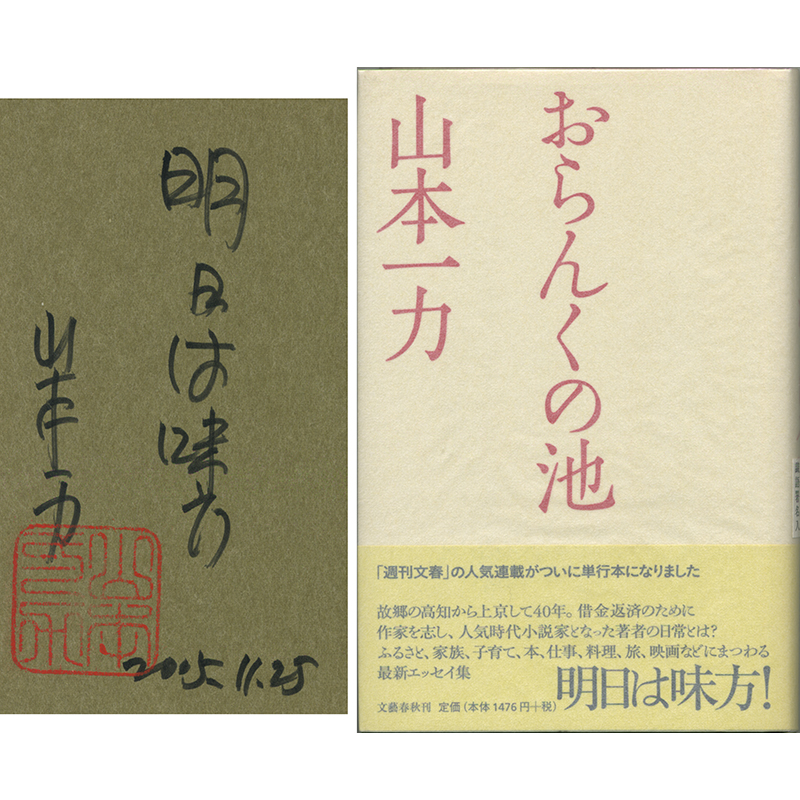 明日は味方
山本一力
2015.11.25
おらんくの池
山本一力
「週刊文春」の人気連載がついに単行本になりました
故郷の高知から上京して40年。借金返済のために
作家を志し、人気時代小説家となった著者の日常とは?
ふるさと、家族、子育て、本、仕事、料理、旅、映画などにまつわる
最新エッセイ集
明日は味方!
文藝春秋刊 定価(本体1476円+税)